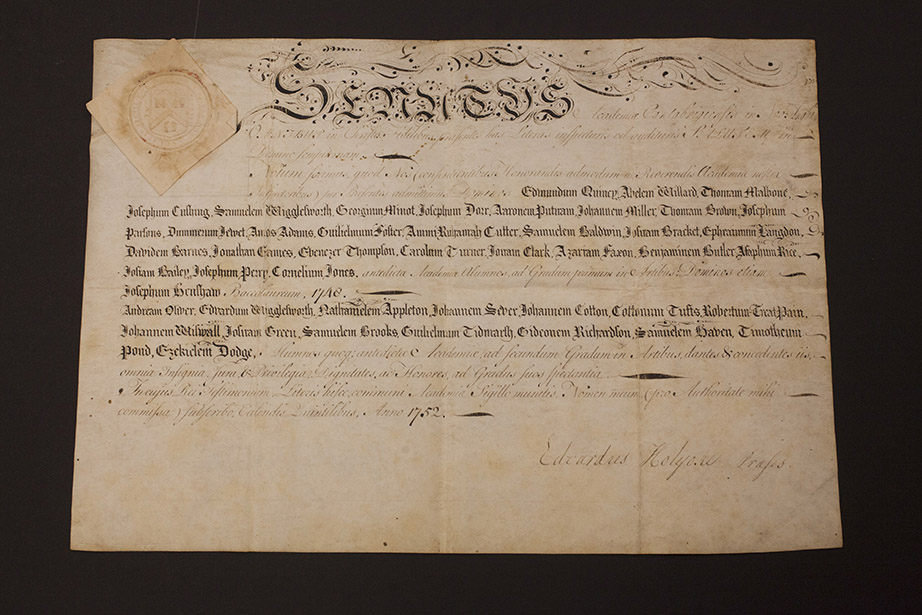 SENATUS
Academiæ Cantabrigiensis in
in Christo fidelibus has Literas inspecturis vel audituris SALUTEM in
Domino sempiternam.
Notum facimus quod Nos (consentientibus Honorandis admodum ac Reverendis Academiæ nostræ
Inspectoribus) pro Baccalaureis admittimus Dominos Edmundum Quincy, Abelem Willard, Thomam Malbone,
Josephum Cushing, Samuelem Wigglesworth, Georgium Minot, Josephum Dorr, Aaronem Putnam, Johannem Miller, Thomam Brown, Josephum
Parsons, Dummerum Jewet, Amos Adams, Guilielmum Foster, Ammi Ruhamah Cutter, Samuelem Baldwin, Josuam Bracket, Ephraimum Langdon,
Davidem Barnes, Jonathan Eames, Ebenezer Thompson, Carolum Turner, Jonam Clark, Azariam Faxon, Benjaminem Butler, Asaphum Rice,
Josiam Bailey, Josephum Perry, Cornelium Jones, antedictæ Academiæ Alumnos, ad Gradum primum in Artibus: Dominos etiam
Josephum Henshaw Baccalaureum, 1748.
Andream Oliver, Edvardum Wigglesworth, Nathanielem Appleton, Johannem Sever, Johannem Cotton, Cottonum Tufts, Robertum Treat Pain,
Johannem Wiswall, Josuam Green, Samuelem Brooks, Guilielmum Tidmarsh, Gideonem Richardson, Samuelem Haven, Timotheum
Pond, Ezekielem Dodge, Alumnos quoq; antedictæ Academiæ, ad secundum Gradum in Artibus, dantes & concedentes iis,
omnia Insignia, Jura, & Privilegia, Dignitates, ac Honores, ad Gradus suos spectantia.
In cujus Rei Testimonium, Literis hisce communi Academiæ Sigillo munitis, Nomen meum (pro Authoritate mihi
commissa) subscribo, Calendis Quintilibus, Anno 1752.
Edvardus Holyoke Præses.